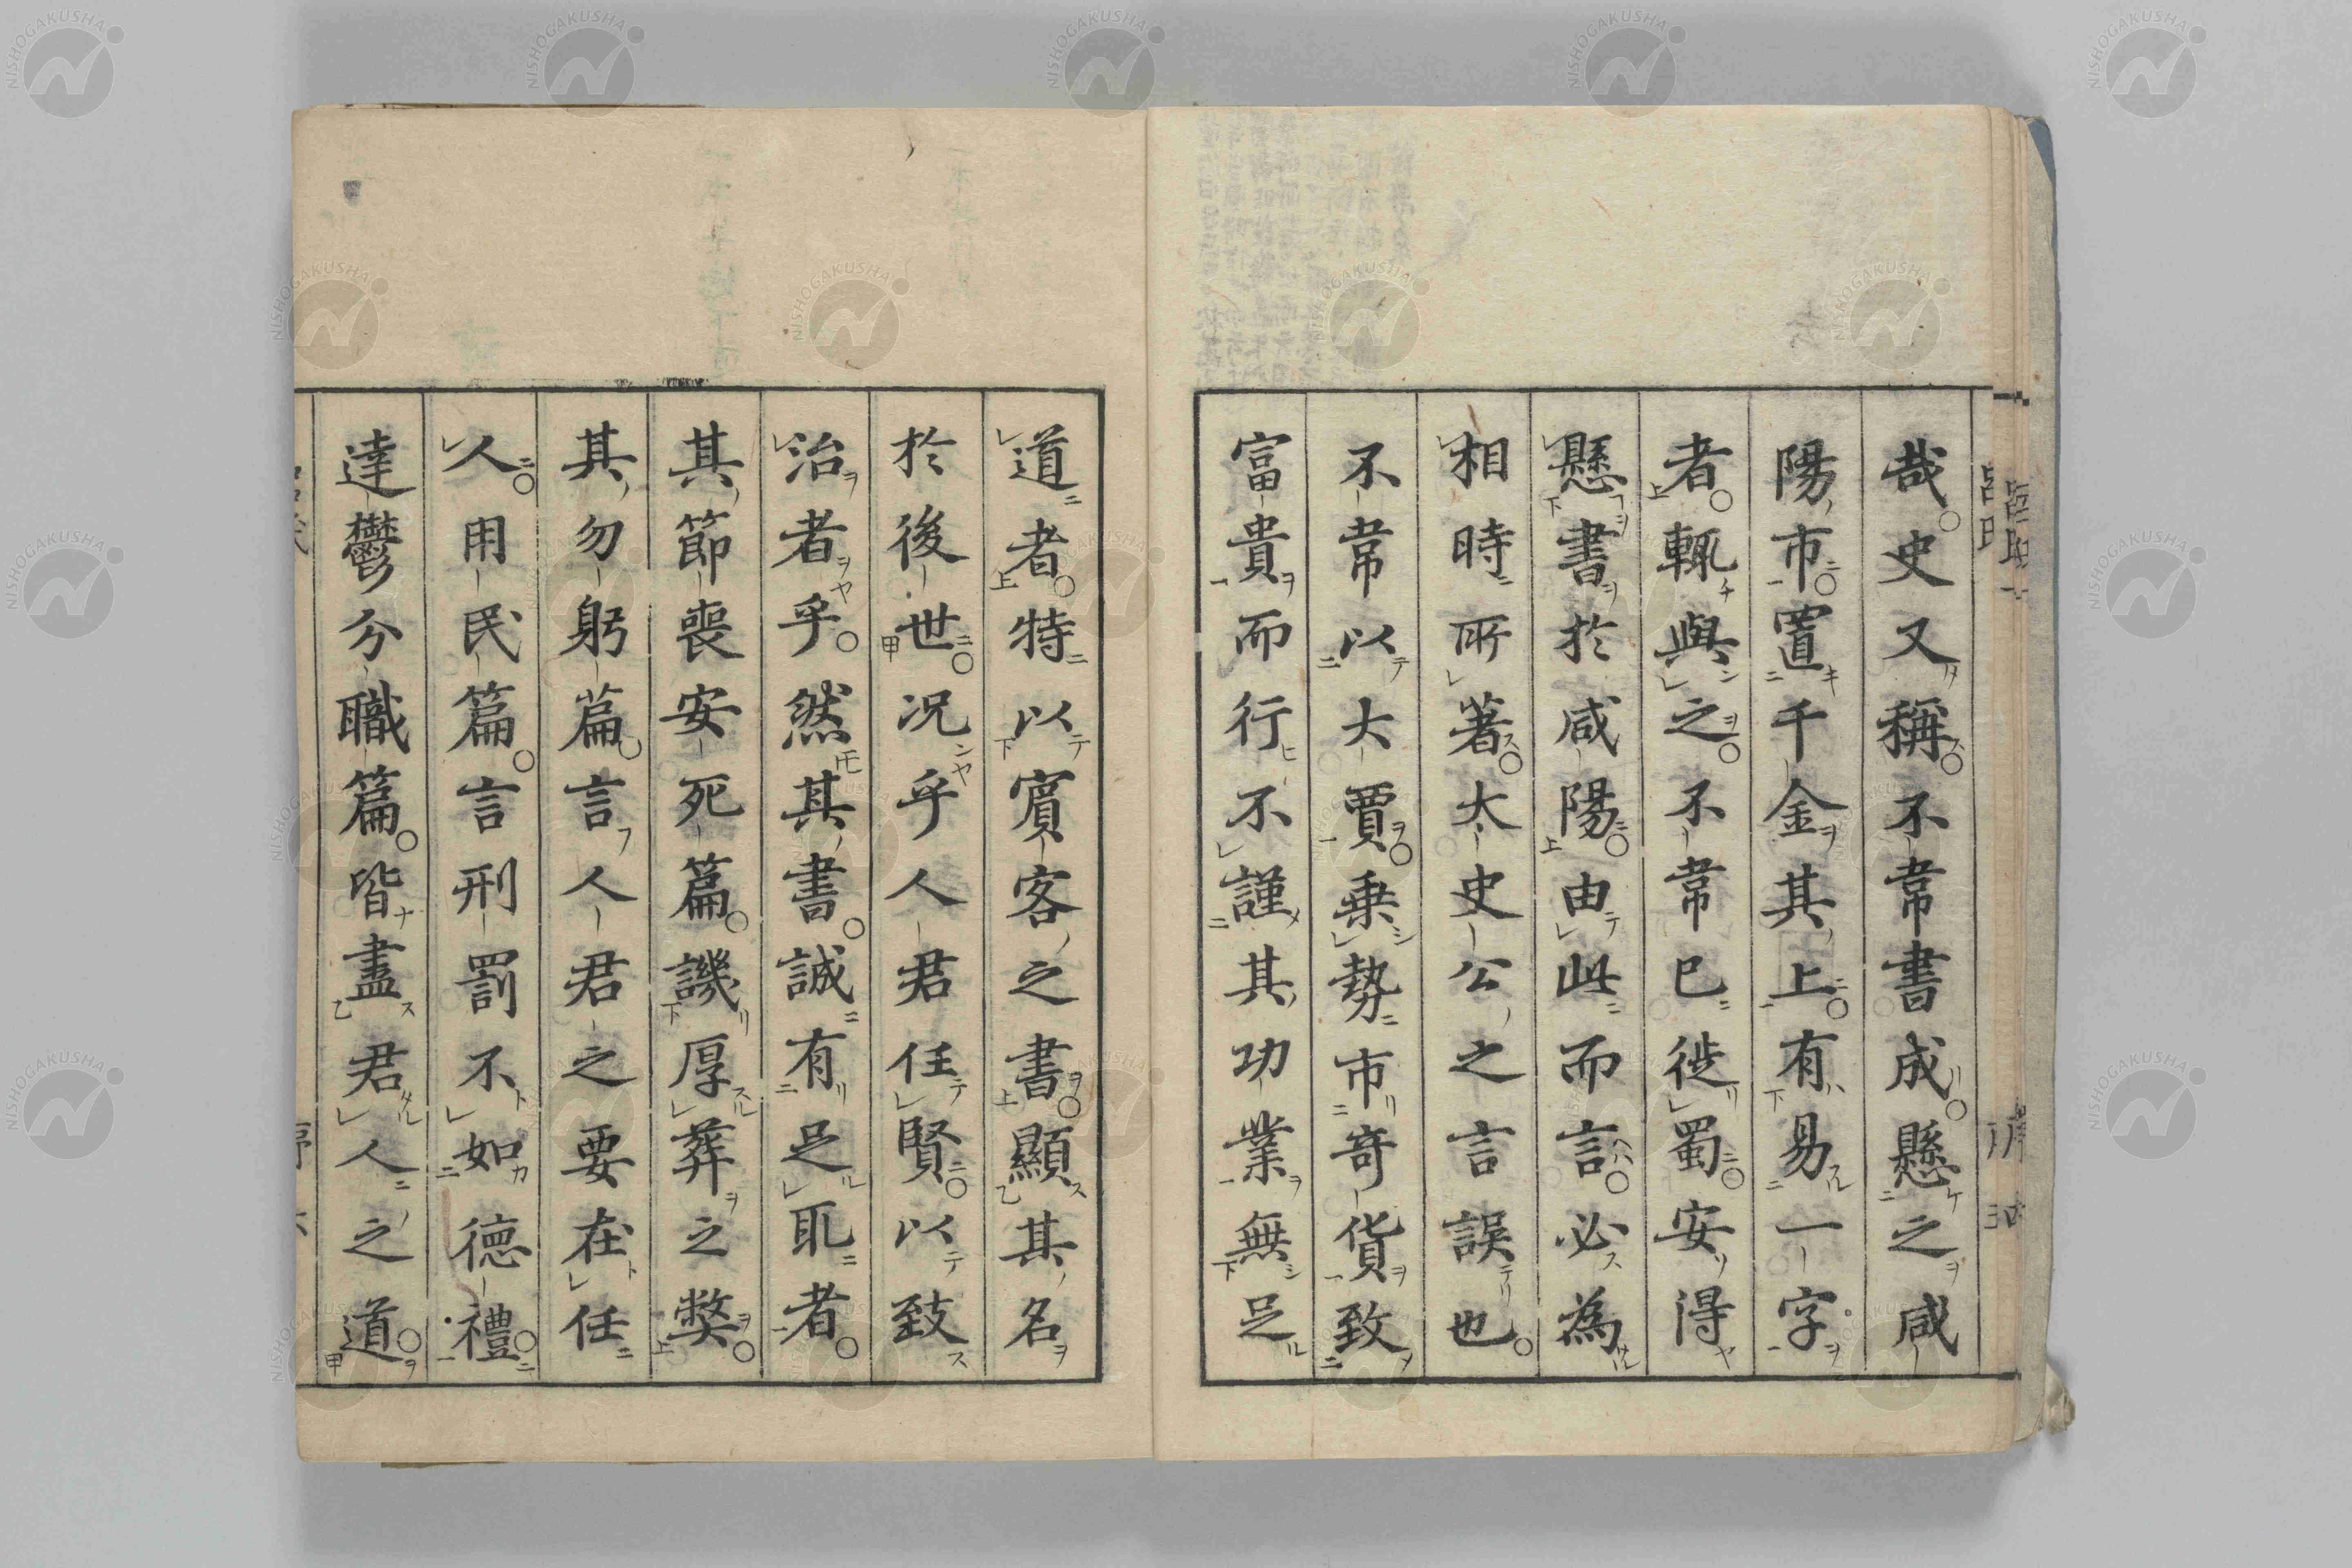 哉史又稱不韋書成懸之咸
陽市置千金其上有易一字
者輒與之不韋已徙蜀安得
懸書於咸陽由此而言必為
相時所著太史公之言誤也
不韋以大賈乗勢市奇貨致
富貴而行不謹其功業無足
道者特以賓客之書顯其名
於後世况乎人君任賢以致
治者乎然其書誠有足取者
其節喪安死篇譏厚葬之弊
其勿躬篇言人君之要在任
人用民篇言刑罰不如德禮
達鬱分職篇皆盡君人之道
NISHOGAKUSHA